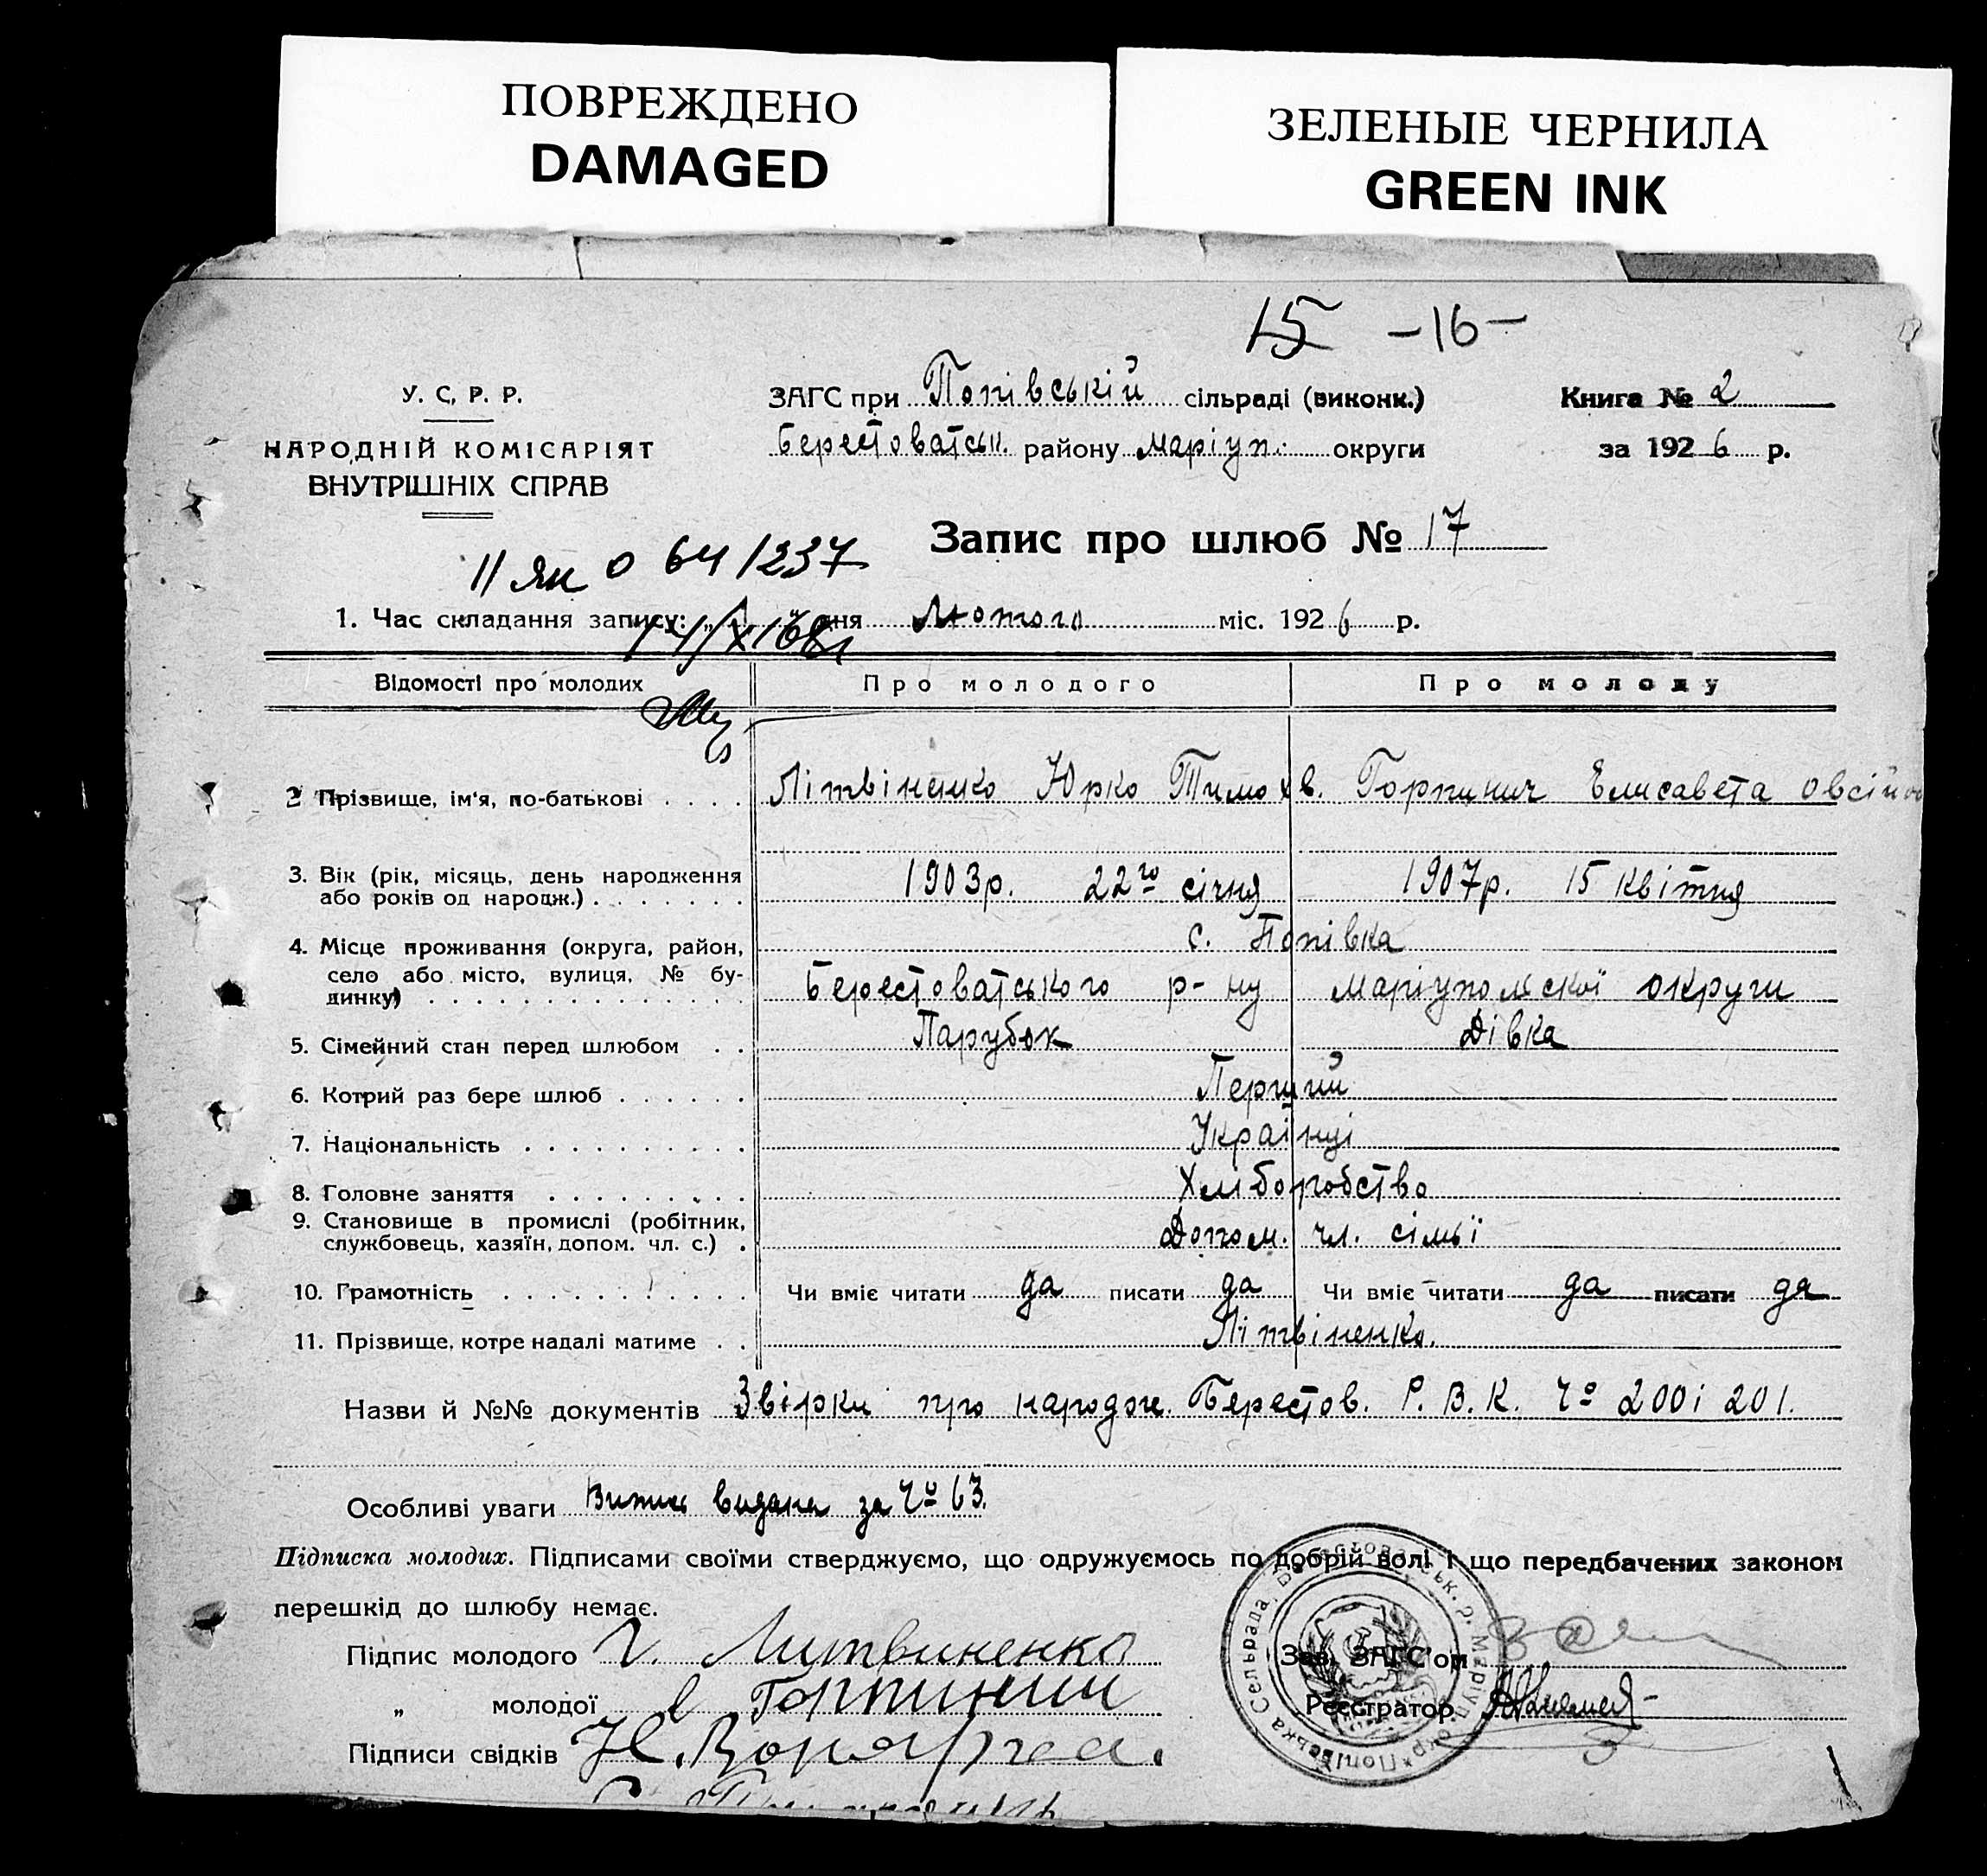 ПОВРЕЖДЕНО
DAMAGED
ЗЕЛЕНЫЕ ЧЕРНИЛА
GREEN INK
15 -16-
У. С. Р. Р.
НАРОДНІЙ КОМІСАРІЯТ
ВНУТРІШНІХ СПРАВ
ЗАГС при Попівській сільраді (виконк.)
Берестоватськ. району Маріуп. округи
Книга № 2
за 1926 р.
Запис про шлюб № 17
1. Час складання запису: дня Лютого міс. 1926 р.
Відомості про молодих Про молодого Про молоду
2 Прізвище, ім'я, по-батькові Літвіненко Юрко Тимохв. Горпинич Елисавета Овсій
3. Вік (рік, місяць, день народження
або років од народж.) 1903р. 22го січня 1907р. 15 квітня
4. Місце проживання (округа, район, с. Попівка
село або місто, вулиця, № бу-
динку) Берестоватського р-ну Маріупольскої округи
5. Сімейний стан перед шлюбом Парубок Дівка
6. Котрий раз бере шлюб Перший
7. Національність Українці
8. Головне заняття Хліборобство
9. Становище в промислі (робітник,
службовець, хазяїн, допом. чл. с.) Допом. чл. сімьї
10. Грамотність Чи вміє читати да писати да Чи вміє читати да писати да
11. Прізвище, котре надалі матиме Літвіненко.
Назви й №№ документів Звірки про народж. Берестов. Р. В. К. Чо 200 і 201.
Особливі уваги Випис видана за Чо 63.
Підписка молодих. Підписами своїми стверджуємо, що одружуємось по добрій волі і що передбачених законом
перешкід до шлюбу немає.
Підпис молодого Литвиненко
„ молодої Горпинич
Підписи свідків
Зав. ЗАГС'ом
Реєстратор
Попівська Сельрада Берестоватськ. р. Маруп. окр